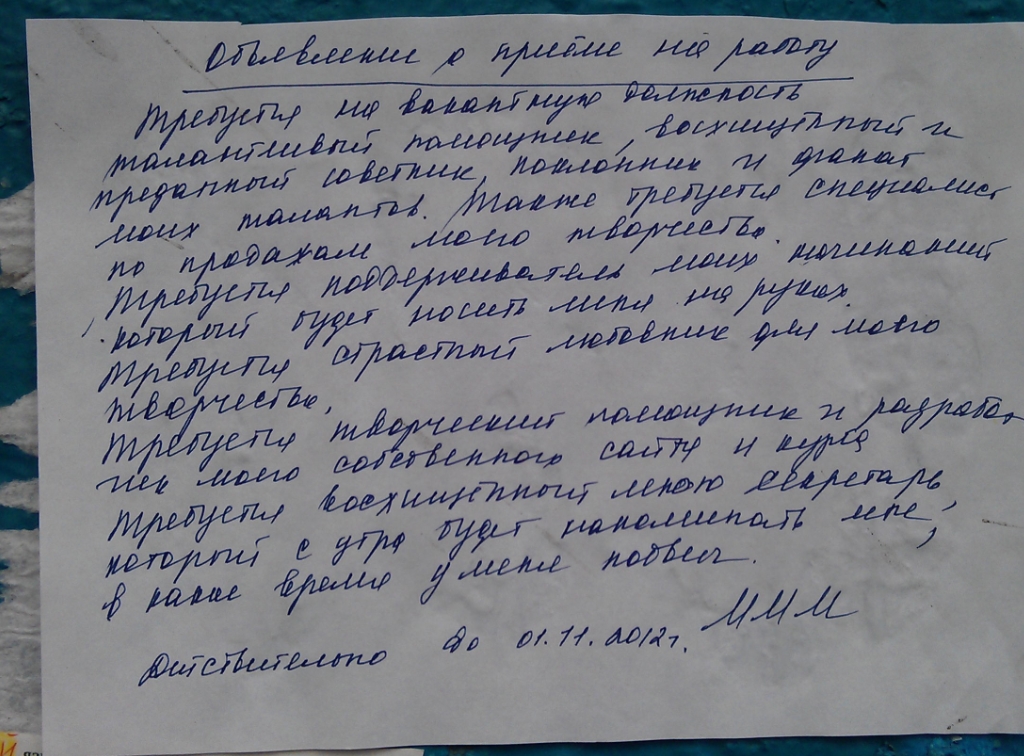 Объявление о приёме на работу
Требуется на вакантную должность
талантливый помощник, восхищённый и
преданный советник, поклонник и фанат
моих талантов. Также требуется специалист
по продажам моего творчества.
Требуется поддерживатель моих начинаний
который будет носить меня на руках.
Требуется страстный любовник для моего
творчества.
Требуется творческий помощник и разработ
чик моего собственного сайта и курса
Требуется восхищённый мною секретарь,
который с утра будет напоминать мне,
в какое время у меня
Действительно до 01.11.2012г. МММ